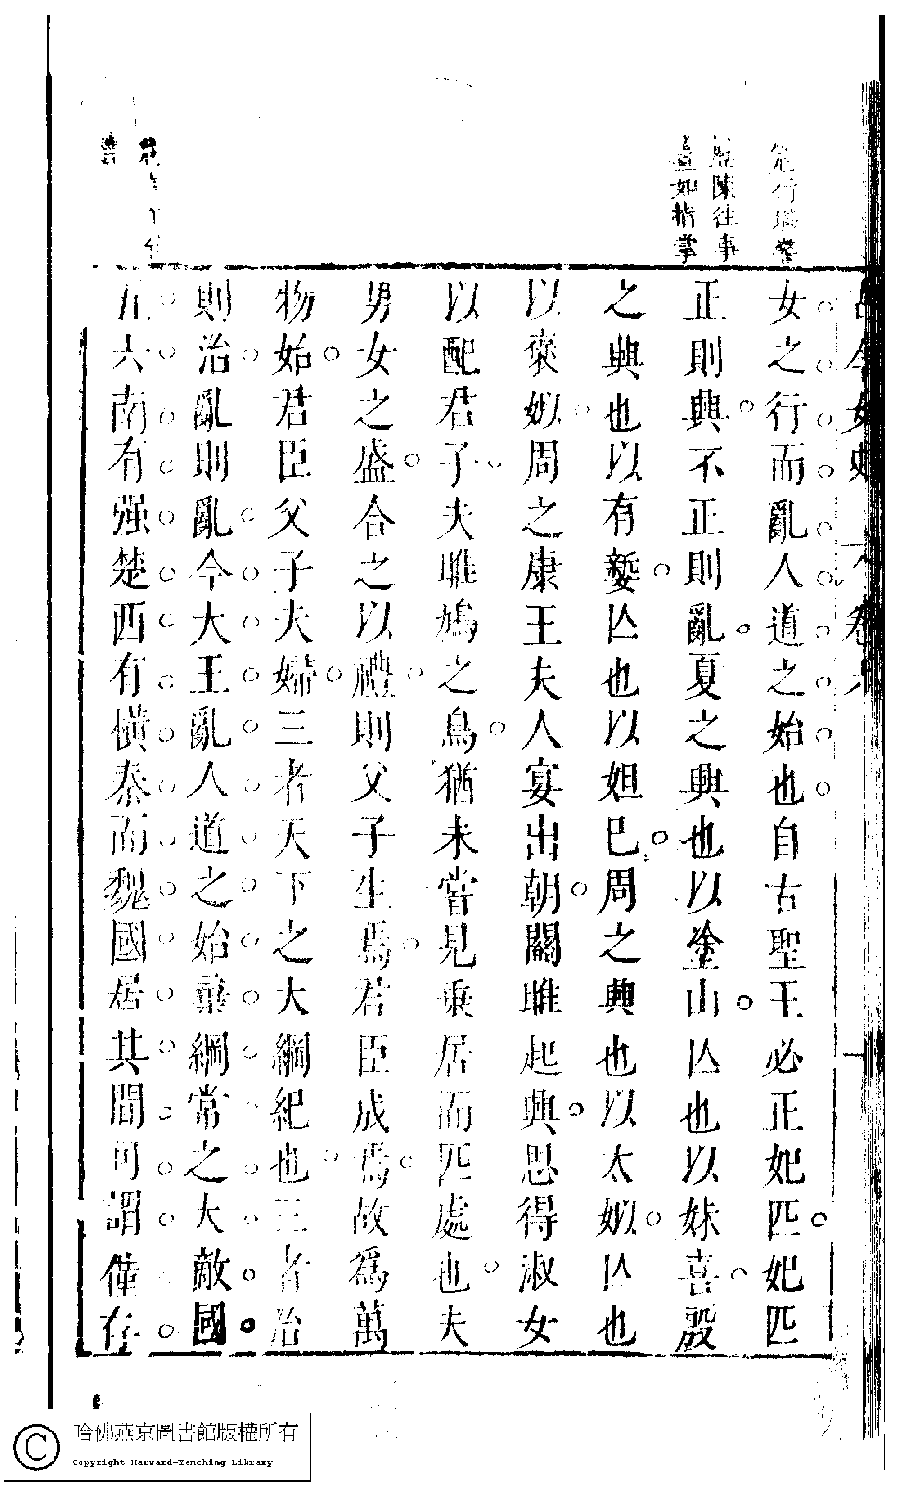 陳往事
如指掌
女之行而亂人道之始也自古聖王必正妃匹妃匹
正則興不正則亂夏之興也以塗山亾也以妹喜殷
之興也以有㜪亾也以妲巳周之興也以太姒亾也
以褒姒周之康王夫人宴出朝關雎起興思得淑女
以配君子夫雎鳩之鳥猶未嘗見乗居而匹處也夫
男女之盛合之以禮則父子生焉君臣成焉故爲萬
物始君臣父子夫婦三者天下之大綱紀也三者治
則治亂則亂今大王亂人道之始棄綱常之大敵國
五六南有强楚西有橫秦而魏國居其間可謂僅存
哈佛燕京圖書館版權所有
Copyright Harvard-Yenching Library